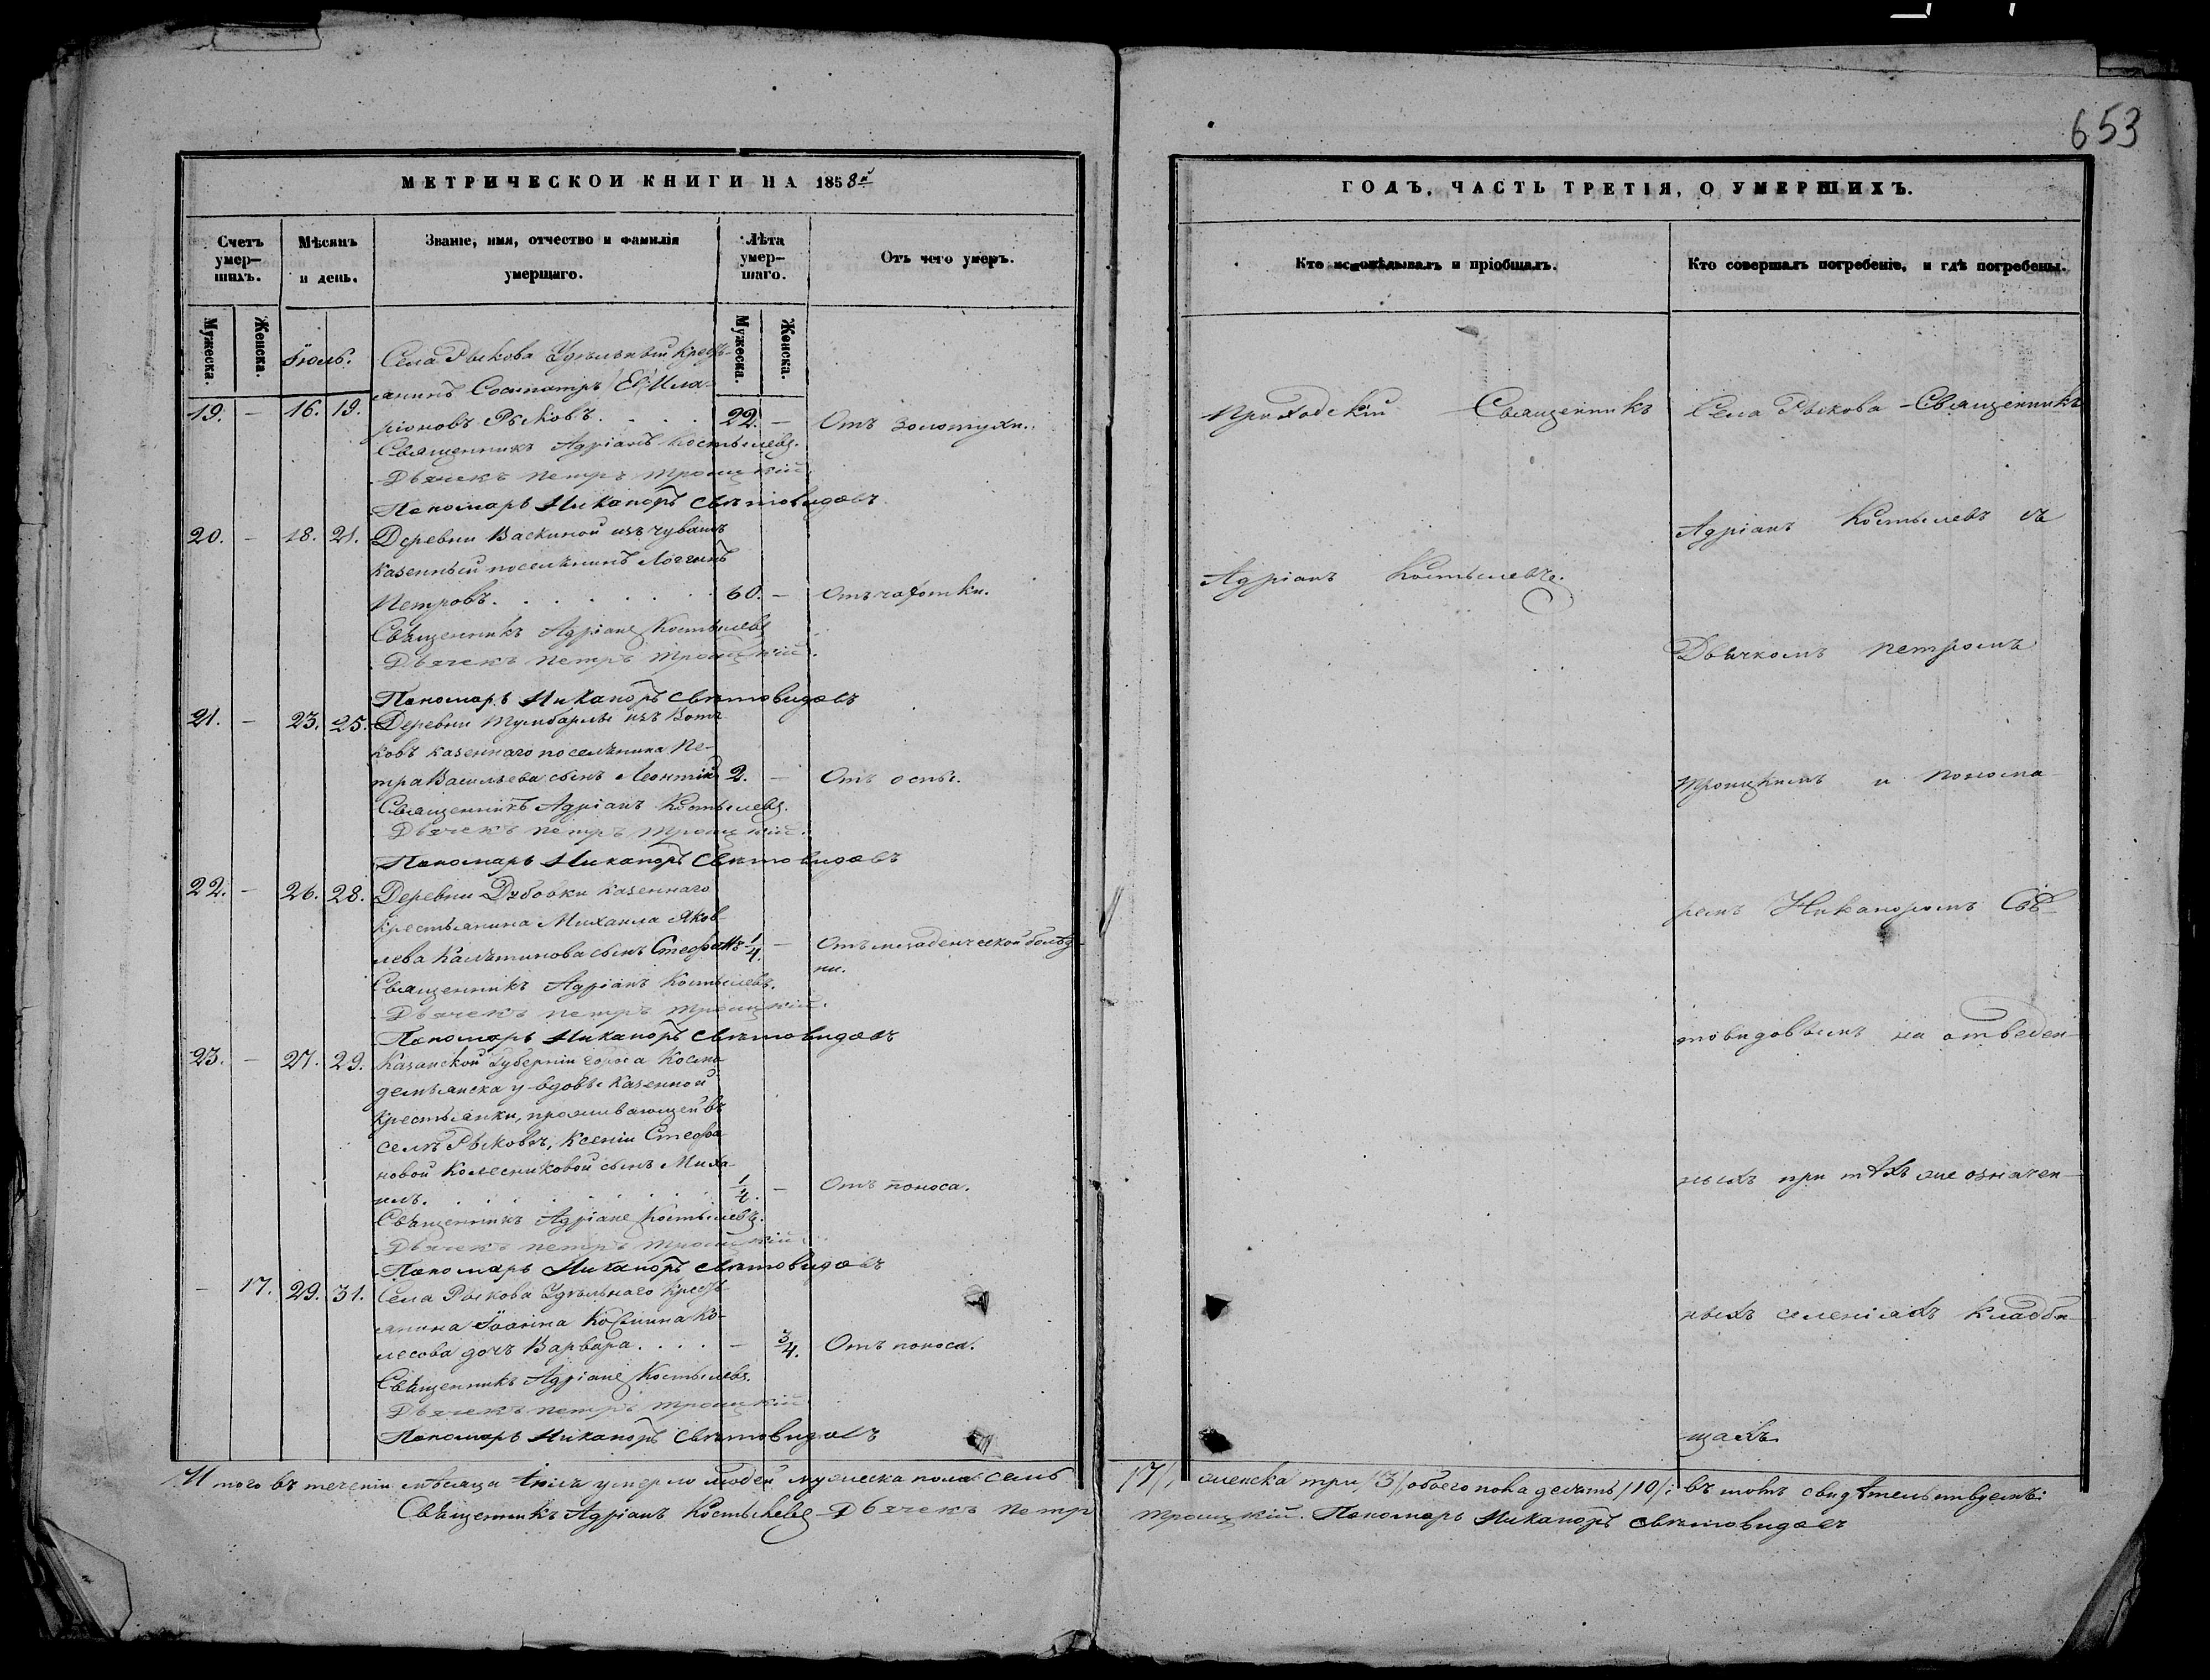 653
МЕТРИЧЕСКОЙ КНИГИ НА 1858й
Счетъ умер-
шихъ.
Мѣсяцъ
и день.
Званіе, имя, отчество и фамилія
умершаго.
Лѣта
умер-
шаго.
Отъ чего умеръ.
Мужеска.
Женска.
Мужеска.
Женска.
Іюль.
Села Рыкова Удѣльный кресть-
янинъ Сосипатръ Ила-
19. - 16. 19. ріоновъ Рыковъ. . . . . 22. - Отъ золотухи.
Священникъ Адріанъ Костылевъ.
Дьячекъ Петръ Троицкій.
Пономарь Никаноръ Свѣтовидовъ
20. - 18. 21. Деревни Васкиной изъ чувашъ
казенный поселянинъ Логгинъ
Петровъ. . . . . . . 60. - Отъ чахотки.
Священникъ Адріанъ Костылевъ
Дьячекъ Петръ Троицкій.
Пономарь Никаноръ Свѣтовидовъ
21. - 23. 25. Деревни Тумбарлы изъ Вотя-
ковъ казеннаго поселянина Пе-
тра Васильева сынъ Леонтій 2. - Отъ оспы.
Священникъ Адріанъ Костылевъ.
Дьячекъ Петръ Троицкій.
Пономарь Никаноръ Свѣтовидовъ
22. - 26. 28. Деревни Дубовки казеннаго
крестьянина Михаила Яков-
лева сынъ Стефанъ 1/4. - Отъ младенческой болѣз-
ни.
Священникъ Адріанъ Костылевъ.
Дьячекъ Петръ Троицкій.
Пономарь Никаноръ Свѣтовидовъ
23. - 27. 29. Казанской Губерніи города Космо-
демьянска у вдовы казенной
крестьянки, проживающей въ
селѣ Рыковѣ, Ксеніи Стефа-
новой Колесниковой сынъ Миха-
илъ. . . . . . . . - Отъ поноса.
Священникъ Адріанъ Костылевъ.
Дьячекъ Петръ Троицкій.
Пономарь Никаноръ Свѣтовидовъ
- 17. 29. 31. Села Рыкова Удѣльнаго кресть-
янина Іоанна Космина Ко-
лесова дочь Варвара. . . . - 3/4. Отъ поноса.
Священникъ Адріанъ Костылевъ.
Дьячекъ Петръ Троицкій
Пономарь Никаноръ Свѣтовидовъ
Итого въ теченіи мѣсяца Іюля умерло людей мужеска пола семь
Священникъ Адріанъ Костылевъ Дьячекъ Петръ
ГОДЪ, ЧАСТЬ ТРЕТІЯ, О УМЕРШИХЪ.
Кто исповѣдывалъ и пріобщалъ.
Кто совершалъ погребеніе, и гдѣ погребены.
Приходскій Священникъ
Адріанъ Костылевъ.
Села Рыкова Священникъ
Адріанъ Костылевъ съ
Дьячкомъ Петромъ
Троицкимъ и Понома-
ремъ Никаноромъ Свѣ-
товидовымъ на отведен-
ныхъ при тѣхъ же означен-
ныхъ селеніяхъ кладби-
щахъ
/7/, женска три /3/ обоего пола десять /10/: въ томъ свидѣтельствуемъ:
Троицкій. Пономарь Никаноръ Свѣтовидовъ